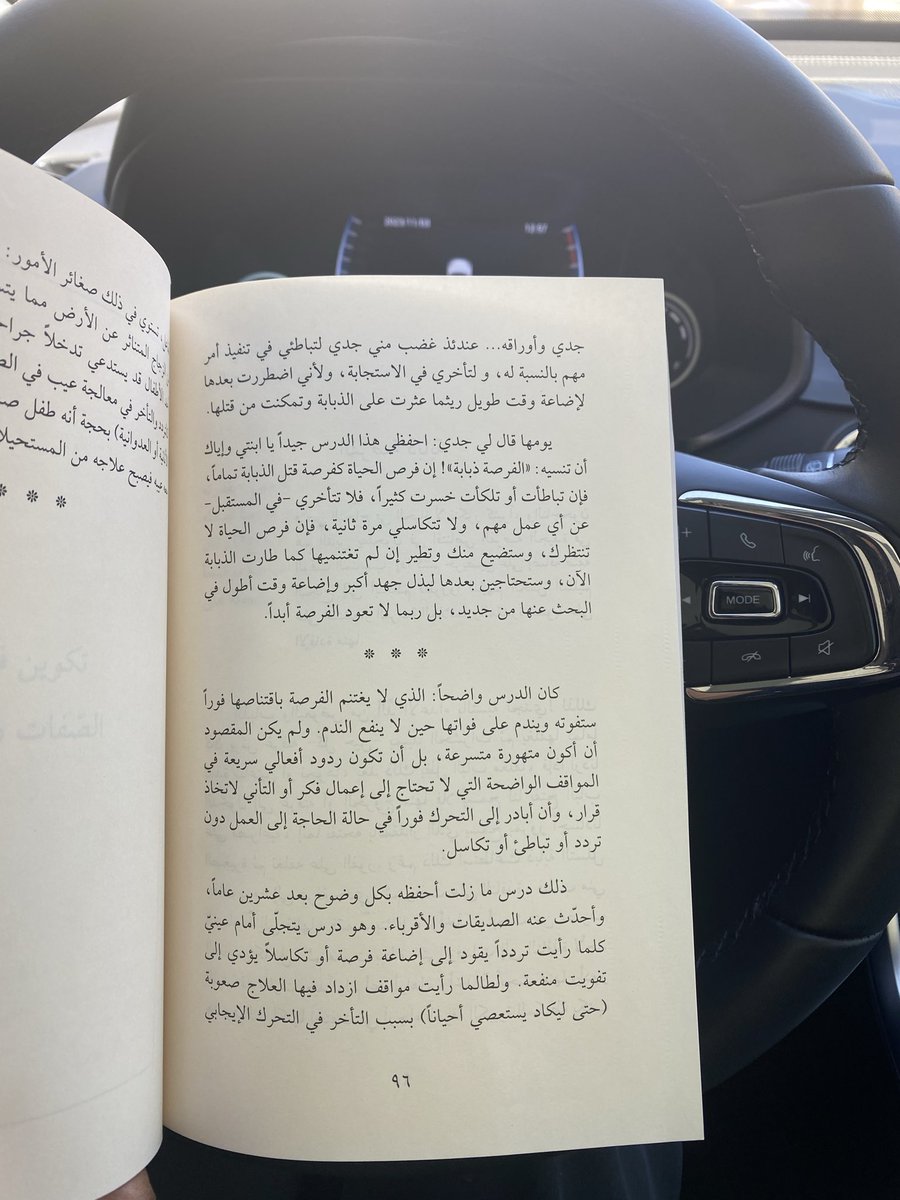 جدي وأوراقه... عندئذ غضب مني جدي لتباطئي في تنفيذ أمر
مهم بالنسبة له، ولتأخري في الاستجابة، ولأني اضطررت بعدها
لإضاعة وقت طويل ريثما عثرت على الذبابة وتمكنت من قتلها.
يومها قال لي جدي: احفظي هذا الدرس جيداً يا ابنتي وإياك
أن تنسيه: «الفرصة ذبابة»! إن فرص الحياة كفرصة قتل الذبابة تماماً،
فإن تباطأت أو تلكأت خسرت كثيراً، فلا تتأخري -في المستقبل-
عن أي عمل مهم، ولا تتكاسلي مرة ثانية، فإن فرص الحياة لا
تنتظرك، وستضيع منك وتطير إن لم تغتنميها كما طارت الذبابة
الآن، وستحتاجين بعدها لبذل جهد أكبر وإضاعة وقت أطول في
البحث عنها من جديد، بل ربما لا تعود الفرصة أبداً.
* * *
كان الدرس واضحاً: الذي لا يغتنم الفرصة باقتناصها فوراً
ستفوته ويندم على فواتها حين لا ينفع الندم. ولم يكن المقصود
أن أكون متهورة متسرعة، بل أن تكون ردود أفعالي سريعة في
المواقف الواضحة التي لا تحتاج إلى إعمال فكر أو التأني لاتخاذ
قرار، وأن أبادر إلى التحرك فوراً في حالة الحاجة إلى العمل دون
تردد أو تباطئ أو تكاسل.
ذلك درس ما زلت أحفظه بكل وضوح بعد عشرين عاماً،
وأحدّث عنه الصديقات والأقرباء. وهو درس يتجلّى أمام عينيّ
كلما رأيت تردداً يقود إلى إضاعة فرصة أو تكاسلاً يؤدي إلى
تفويت منفعة. ولطالما رأيت مواقف ازداد فيها العلاج صعوبة
(حتى ليكاد يستعصي أحياناً) بسبب التأخر في التحرك الإيجابي
٩٦
تستوي في ذلك صغائر الأمور:
المتناثر عن الأرض مما
الأطفال قد يستدعي تدخلاً
والتأخر في معالجة عيب في
أو العدوانية) بحجة أنه طفل
فيصبح علاجه من
* * *
MODE